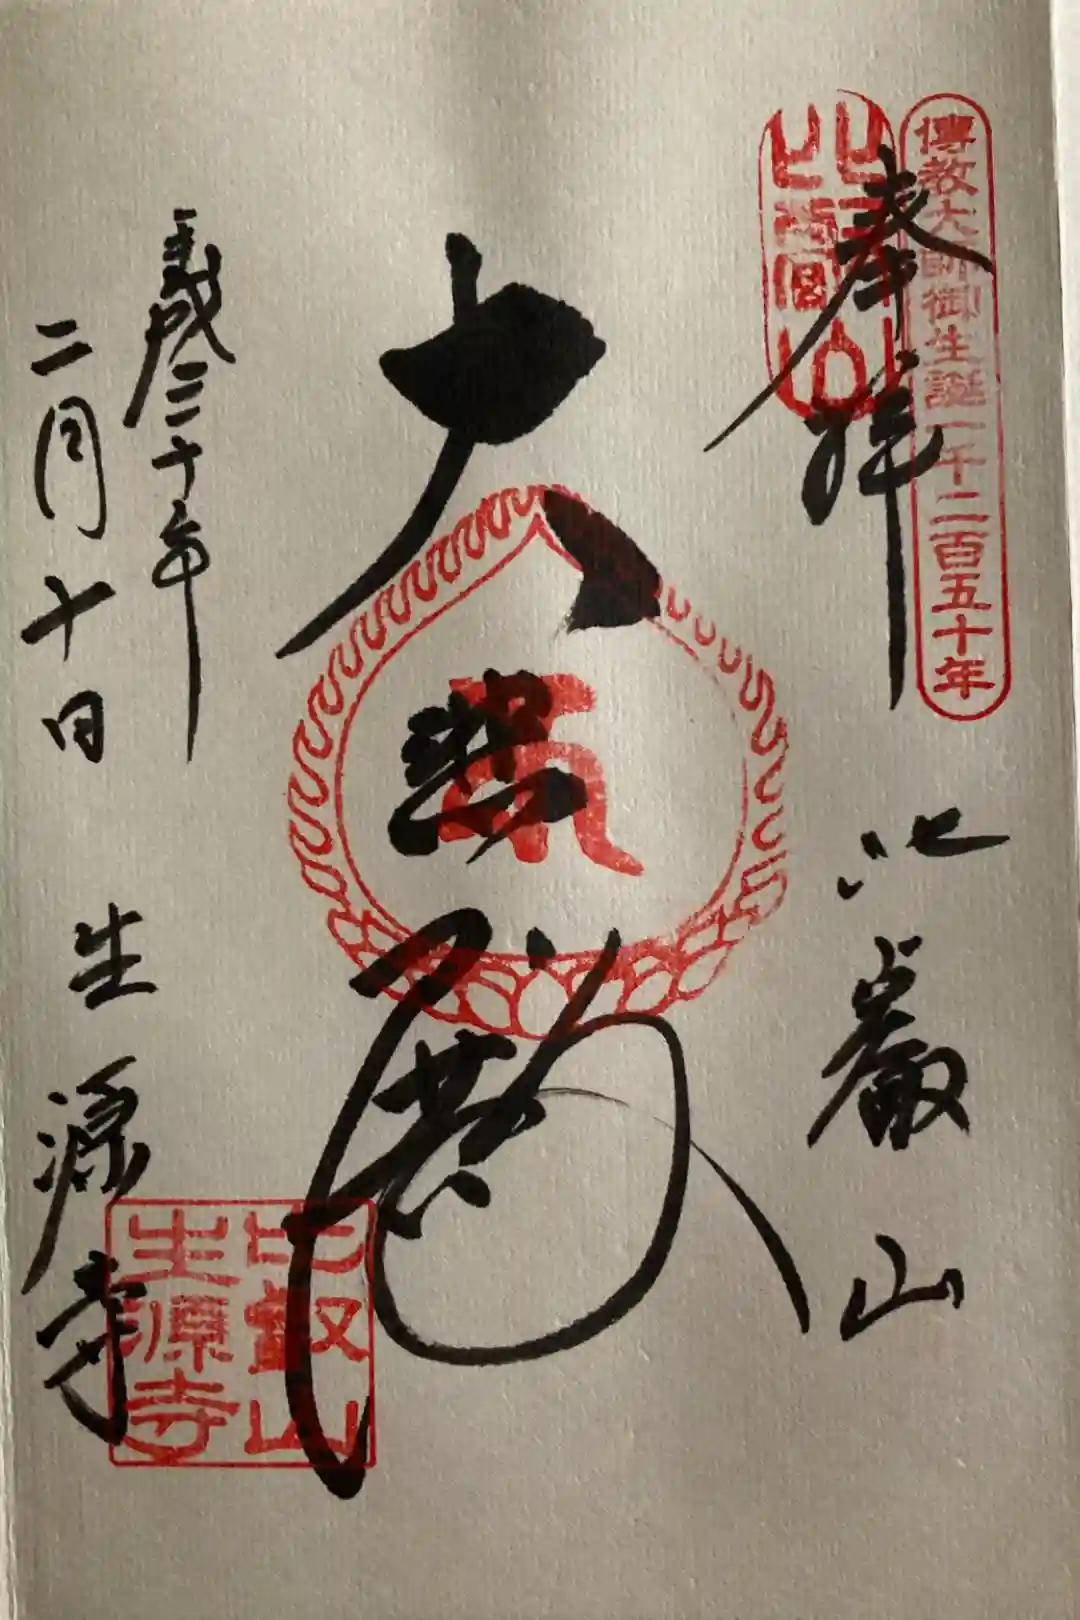 傳教大師御生誕一千二百五十年
奉拝
比叡山
大
平成三十年
二月十日
生源寺
比叡山
生源寺